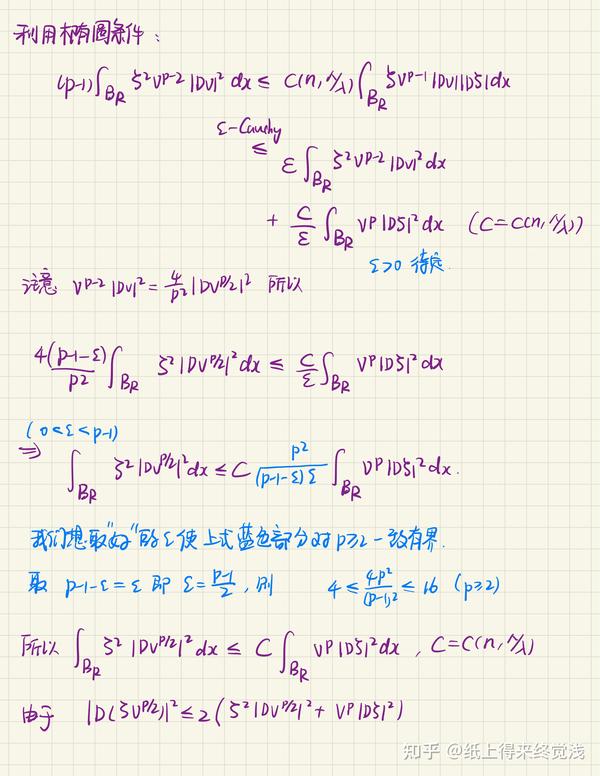 利用椭圆条件：
(p-1)∫_{B_R} ζ²v^{p-2}|Dv|²dx ≤ C(n,Λ/λ)∫_{B_R} ζv^{p-1}|Dv||Dζ|dx
ε-Cauchy
≤ ε∫_{B_R} ζ²v^{p-2}|Dv|²dx
+ C/ε ∫_{B_R} v^p|Dζ|²dx (C=C(n,Λ/λ))
ε>0 待定.
注意 v^{p-2}|Dv|² = 4/p² |Dv^{p/2}|² 所以
4(p-1-ε)/p² ∫_{B_R} ζ²|Dv^{p/2}|²dx ≤ C/ε ∫_{B_R} v^p|Dζ|²dx
(0<ε<p-1)
⇒ ∫_{B_R} ζ²|Dv^{p/2}|²dx ≤ C p²/((p-1-ε)ε) ∫_{B_R} v^p|Dζ|²dx.
我们想取"好"的ε使上式蓝色部分对p≥2一致有界.
取 p-1-ε=ε 即 ε=(p-1)/2, 则 4 ≤ 4p²/(p-1)² ≤ 16 (p≥2)
所以 ∫_{B_R} ζ²|Dv^{p/2}|²dx ≤ C∫_{B_R} v^p|Dζ|²dx, C=C(n,Λ/λ)
由于 |D(ζv^{p/2})|² ≤ 2(ζ²|Dv^{p/2}|²+v^p|Dζ|²)
知乎 @纸上得来终觉浅